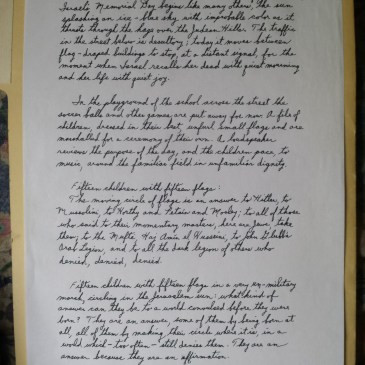 Israel's Memorial Day begins like many others, the sun
splashing an ice-blue sky with improbable color as it
thrusts through the haze over the Judean Hills. The traffic
in the street below is desultory; today it moves between
flag-draped buildings to stop, at a distant signal, for the
moment when Israel recalls her dead with quiet mourning
and her life with quiet joy.
In the playground of the school across the street the
soccer balls and other games are put away for now. A file of
children, dressed in their best, unfurl small flags and are
marshalled for a ceremony of their own. A loudspeaker
reviews the purpose of the day, and the children pace, to
music, around the familiar field in unfamiliar dignity.
Fifteen children with fifteen flags:
The moving circle of flags is an answer to Hitler, to
Mussolini, to Horthy and Petain and Mosley; to all of those
who said to their momentary masters, here are Jews, take
them; to the Mufti, Haj Amin el Husseini, to John Glubb's
Arab Legion, and to all the dark legion of others who
denied, denied, denied.
Fifteen children with fifteen flags in a very un-military
march, circling in the Jerusalem sun: what kind of
answer can they be to a world convulsed before they were
born? They are an answer, some of them by being born at
all, all of them by making their circle where it is, in a
world which - too often - still denies them. They are an
answer because they are an affirmation.